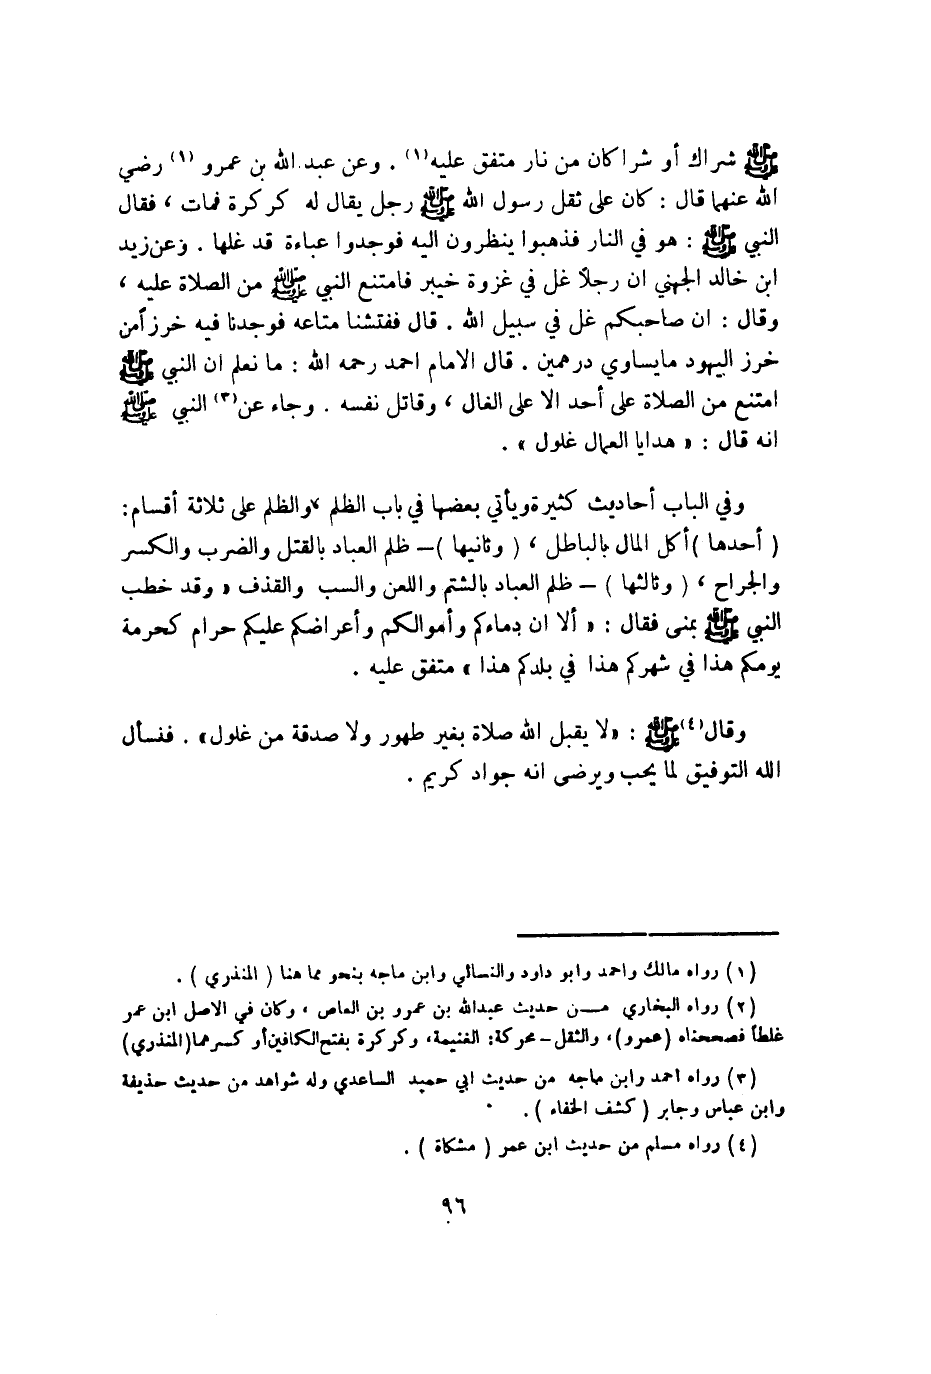 ﷺ شراك أو شراكان من نار متفق عليه(١) . وعن عبد الله بن عمرو (١) رضي
الله عنهما قال : كان على ثقل رسول الله ﷺ رجل يقال له كركرة فمات ، فقال
النبي ﷺ : هو في النار فذهبوا ينظرون اليه فوجدوا عباءة قد غلها . وعن زيد
ابن خالد الجهني ان رجلاً غل في غزوة خيبر فامتنع النبي ﷺ من الصلاة عليه ،
وقال : ان صاحبكم غل في سبيل الله . قال ففتشنا متاعه فوجدنا فيه خرزاً من
خرز اليهود مايساوي درهمين . قال الامام احمد رحمه الله : ما نعلم ان النبي ﷺ
امتنع من الصلاة على أحد الا على الغال ، وقاتل نفسه . وجاء عن(٣) النبي ﷺ
انه قال : « هدايا العمال غلول » .
وفي الباب أحاديث كثيرة ويأتي بعضها في باب الظلم ، والظلم على ثلاثة أقسام :
( أحدها ) أكل المال بالباطل ، ( وثانيها ) – ظلم العباد بالقتل والضرب والكسر
والجراح ، ( وثالثها ) – ظلم العباد بالشتم واللعن والسب والقذف « وقد خطب
النبي ﷺ بمنى فقال : « ألا ان دماءكم وأموالكم وأعراضكم عليكم حرام كحرمة
يومكم هذا في شهركم هذا في بلدكم هذا » متفق عليه .
وقال(٤) ﷺ : « لا يقبل الله صلاة بغير طهور ولا صدقة من غلول» . فنسأل
الله التوفيق لما يحب ويرضى انه جواد كريم .
(١) رواه مالك واحمد وابو داود والنسائي وابن ماجه بنحو مما هنا ( المنذري ) .
(٢) رواه البخاري مـــن حديث عبدالله بن عمرو بن العاص ، وكان في الاصل ابن عمر
غلطاً فصححناه (عمرو)، والثقل – محركة: الغنيمة، وكركرة بفتح الكافين أو كسرهما (المنذري)
(٣) رواه احمد وابن ماجه من حديث ابي حميد الساعدي وله شواهد من حديث حذيفة
وابن عباس وجابر ( كشف الخفاء ) .
(٤) رواه مسلم من حديث ابن عمر ( مشكاة ) .
٩٦